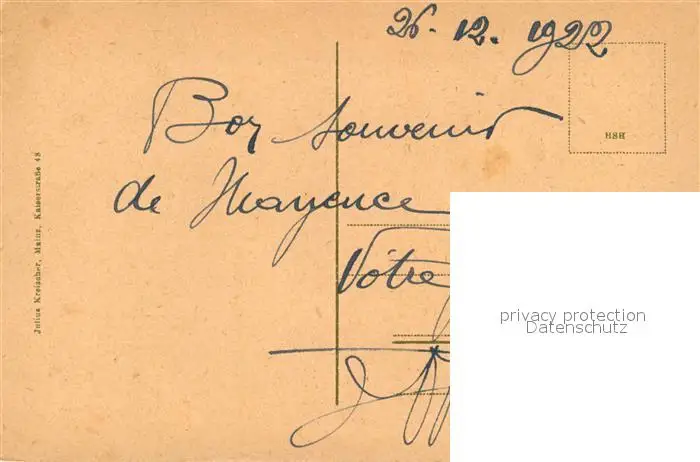 26. 12. 1922
Bon souvenir
de Mayence
Votre
HSH
Julius Kreischer, Mainz, Kaiserstraße 48
privacy protection
Datenschutz